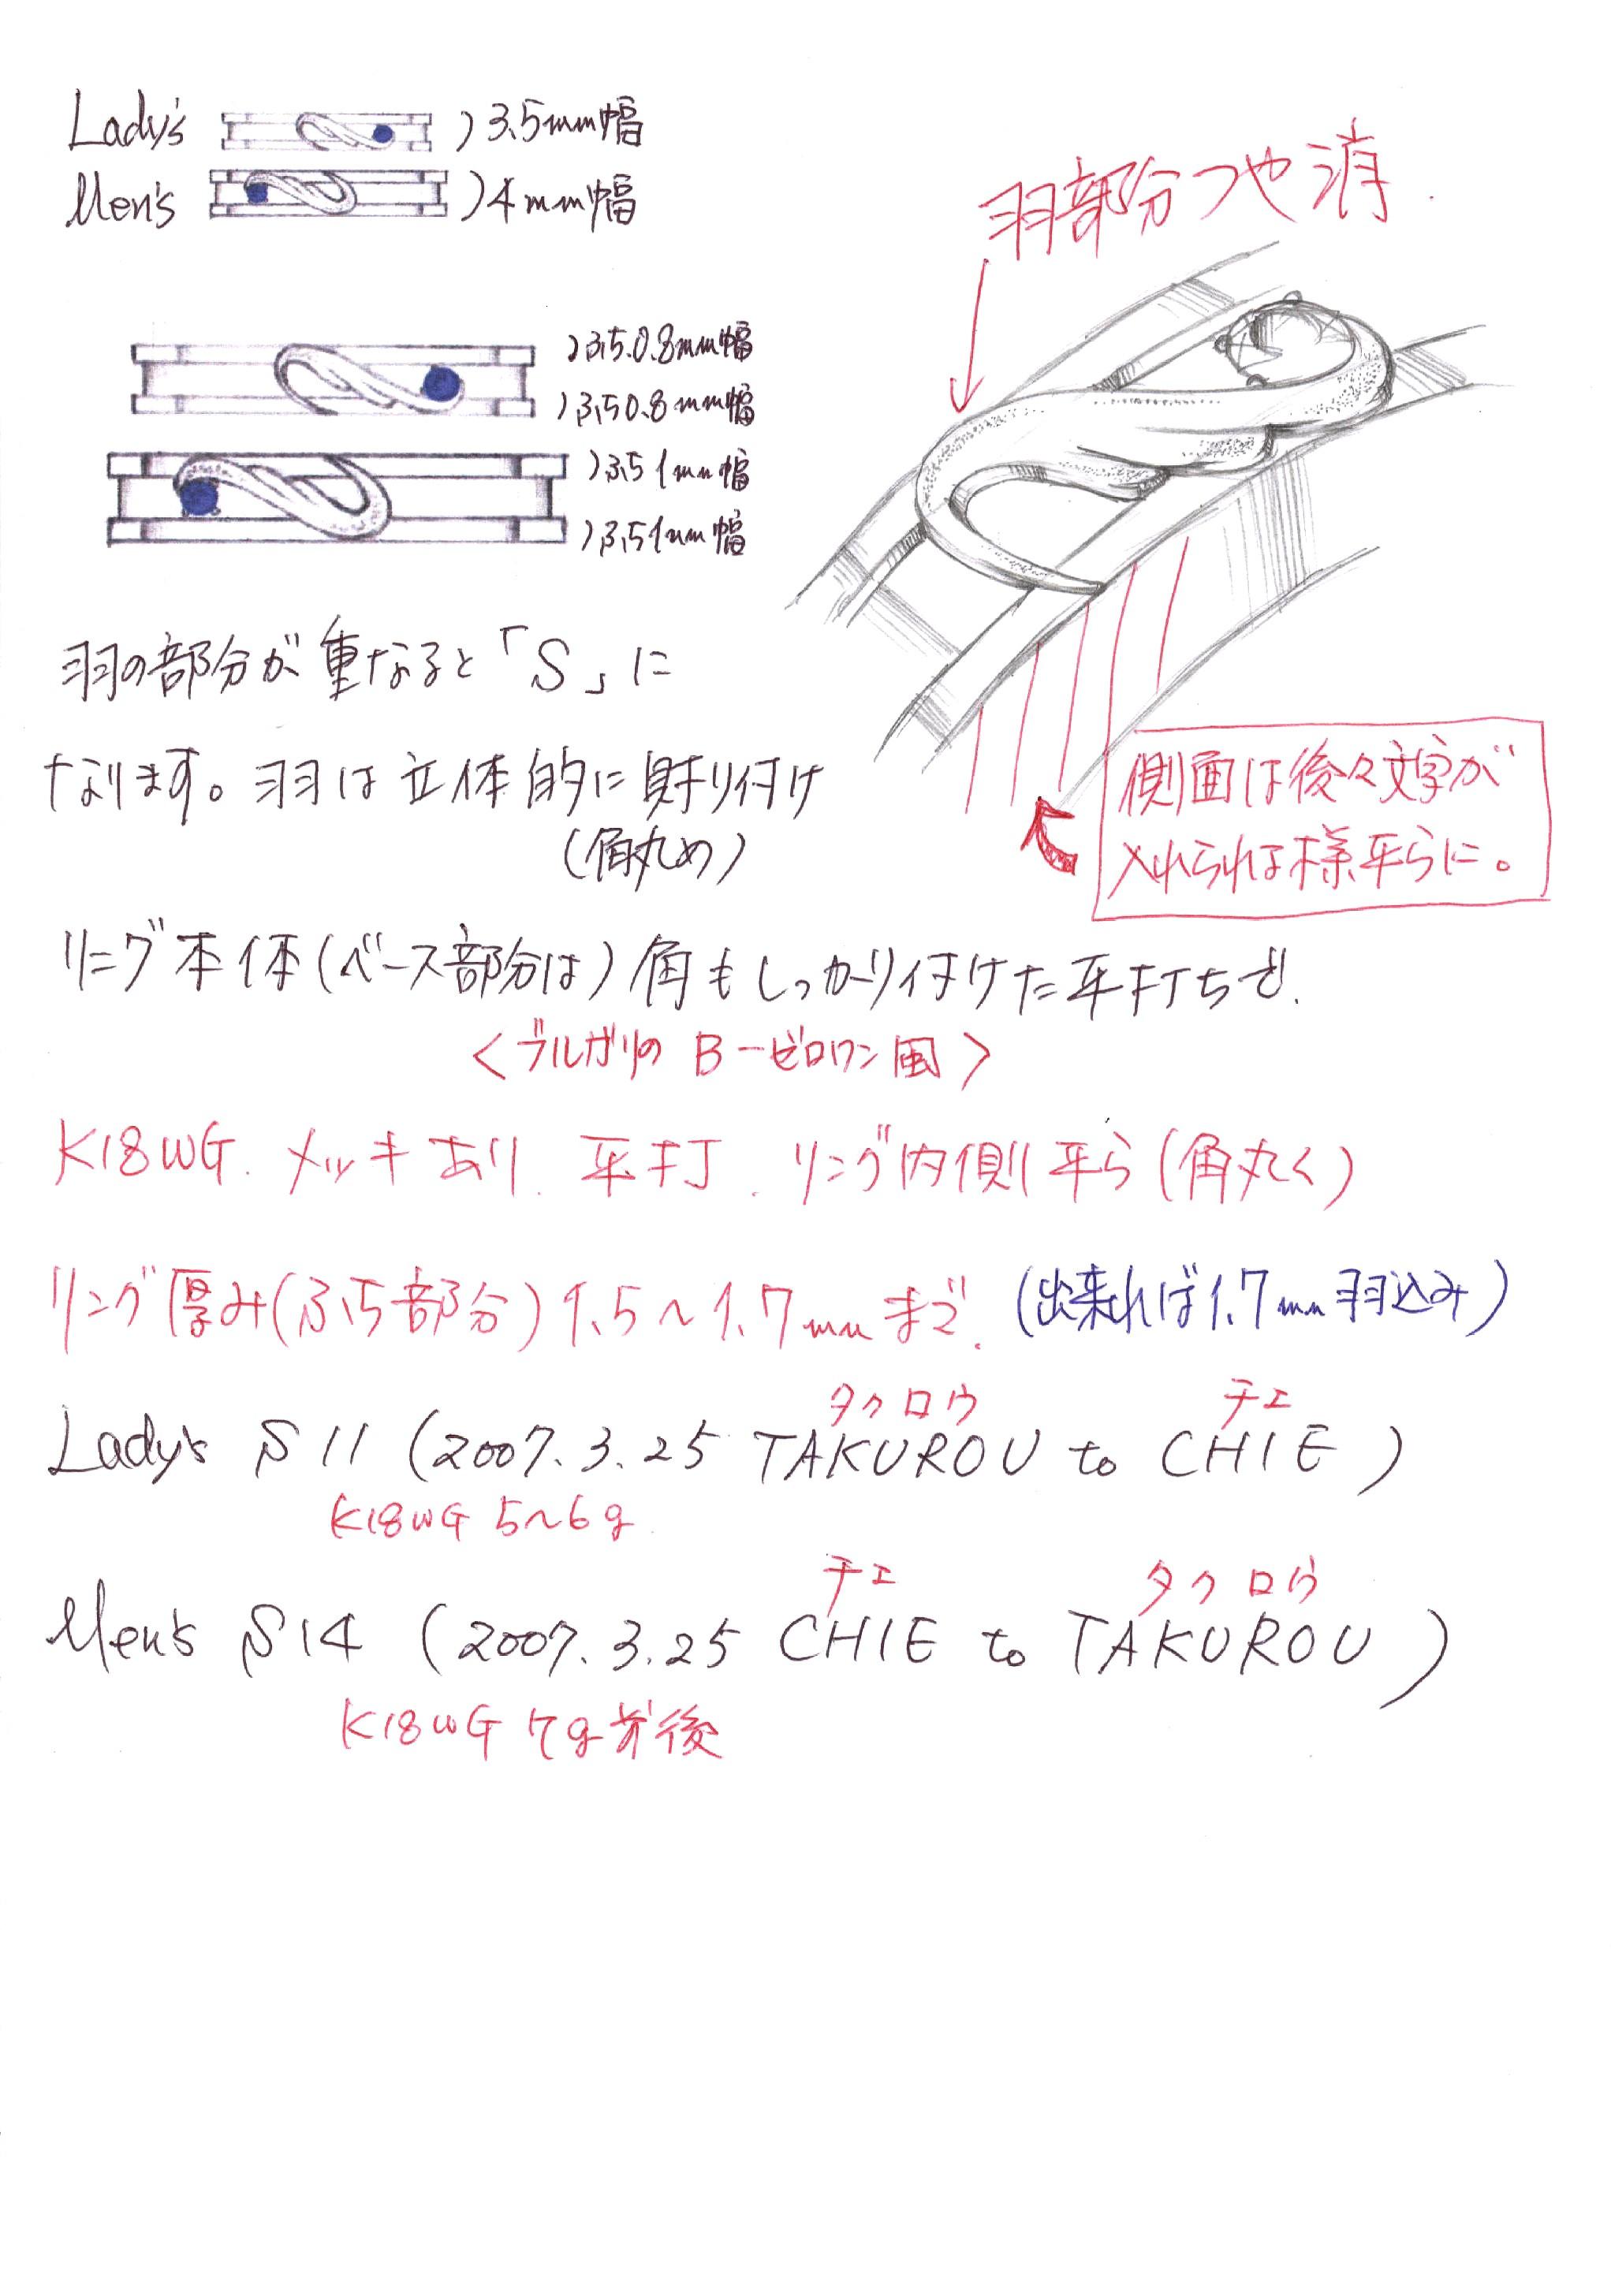 Lady's 3.5mm幅
Men's 4mm幅
羽部分つや消
ふち0.8mm幅
ふち0.8mm幅
ふち1mm幅
ふち1mm幅
羽の部分が重なると「S」に
なります。羽は立体的に貼り付け
(角丸め)
側面は後々文字が
入れられる様平らに。
リング本体(ベース部分は)角もしっかり付けた平打ちで.
<ブルガリの B-ゼロワン風>
K18WG. メッキあり. 平打. リング内側平ら(角丸く)
リング厚み(ふち部分)1.5~1.7mmまで. (出来れば1.7mm羽込み)
タクロウ チエ
Lady's S11 (2007.3.25 TAKUROU to CHIE)
K18WG 5~6g
チエ タクロウ
Men's S14 (2007.3.25 CHIE to TAKUROU)
K18WG 7g前後